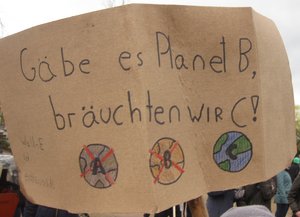 Gäbe es Planet B,
bräuchten WIR C!
A B C